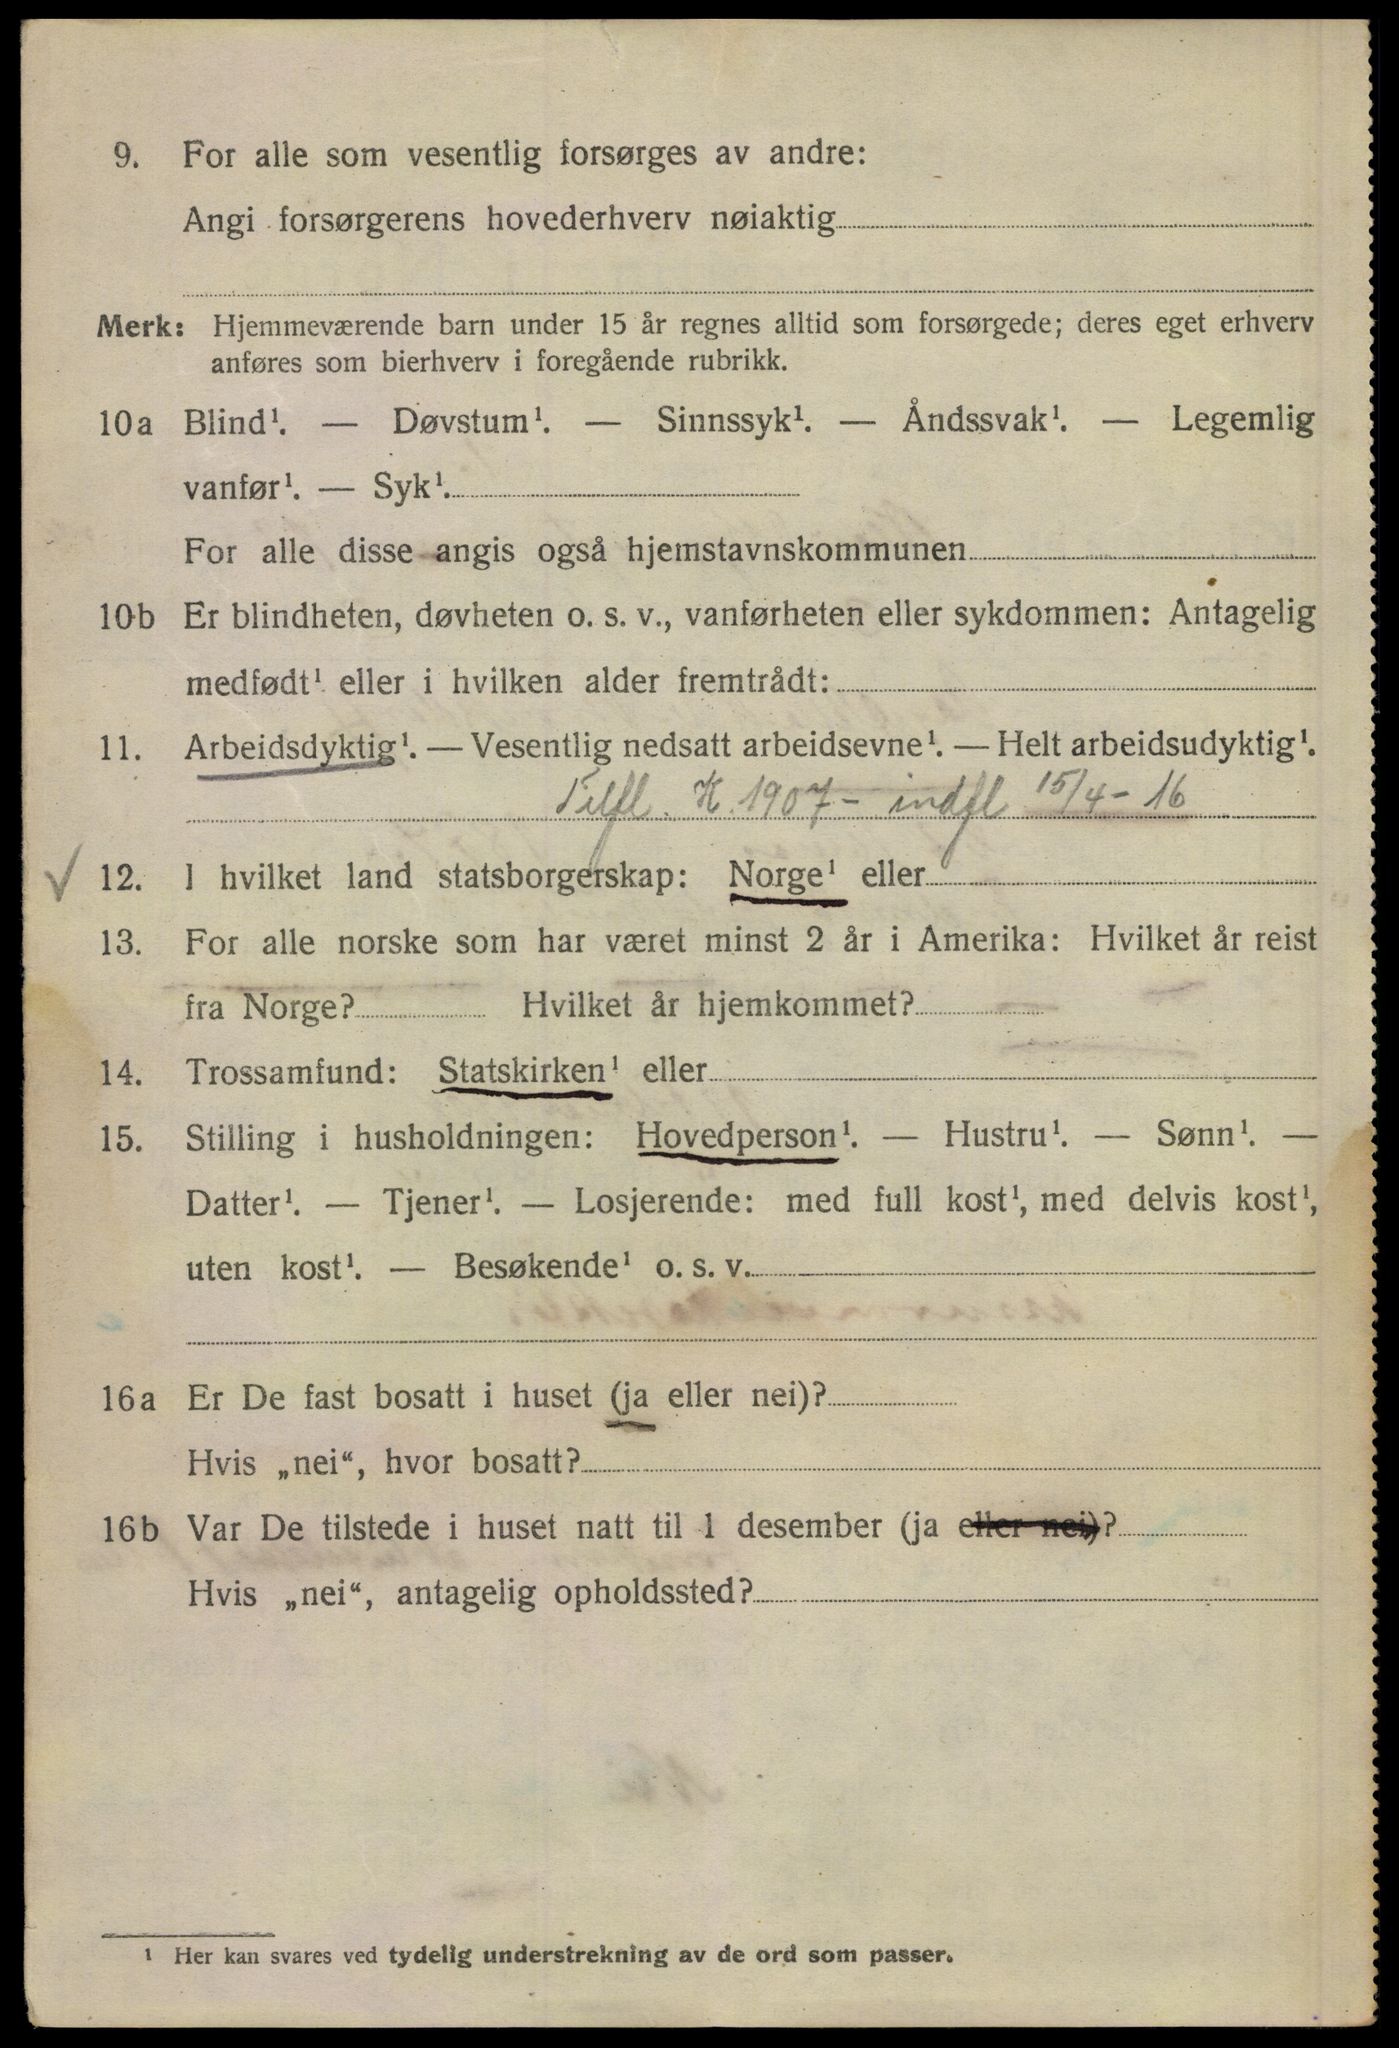 9. For alle som vesentlig forsørges av andre:
Angi forsørgerens hovederhverv nøiaktig
Merk: Hjemmeværende barn under 15 år regnes alltid som forsørgede; deres eget erhverv
anføres som bierhverv i foregående rubrikk.
10a Blind¹. — Døvstum¹. — Sinnssyk¹. — Åndssvak¹. — Legemlig
vanfør¹. — Syk¹.
For alle disse angis også hjemstavnskommunen
10b Er blindheten, døvheten o. s. v., vanførheten eller sykdommen: Antagelig
medfødt¹ eller i hvilken alder fremtrådt:
11. Arbeidsdyktig¹. — Vesentlig nedsatt arbeidsevne¹. — Helt arbeidsudyktig¹.
Tilfl. K. 1907 – indfl 15/4 – 16
12. I hvilket land statsborgerskap: Norge¹ eller
13. For alle norske som har været minst 2 år i Amerika: Hvilket år reist
fra Norge? Hvilket år hjemkommet?
14. Trossamfund: Statskirken¹ eller
15. Stilling i husholdningen: Hovedperson¹. — Hustru¹. — Sønn¹. —
Datter¹. — Tjener¹. — Losjerende: med full kost¹, med delvis kost¹,
uten kost¹. — Besøkende¹ o. s. v.
16a Er De fast bosatt i huset (ja eller nei)?
Hvis „nei“, hvor bosatt?
16b Var De tilstede i huset natt til 1 desember (ja eller nei)?
Hvis „nei“, antagelig opholdssted?
¹ Her kan svares ved tydelig understrekning av de ord som passer.